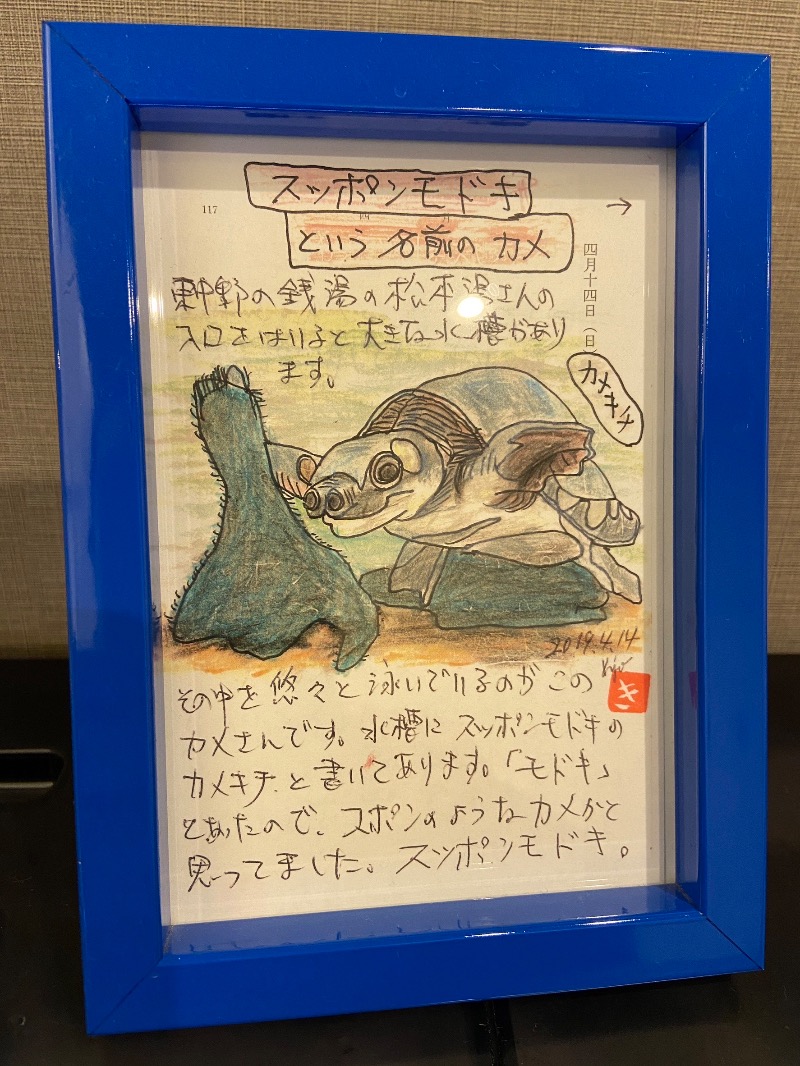 117
スッポンモドキ
→
という名前のカメ
四月十四日（日
東中野の銭湯の松本湯さんの
入口をはいると大きな水槽があり
ます。
カメキチ
2019.4.14
き
その中を悠々と泳いでいるのがこの
カメさんです。水槽にスッポンモドキの
カメキチと書いてあります。「モドキ」
とあったので、スポンのようなカメかと
思ってました。スッポンモドキ。